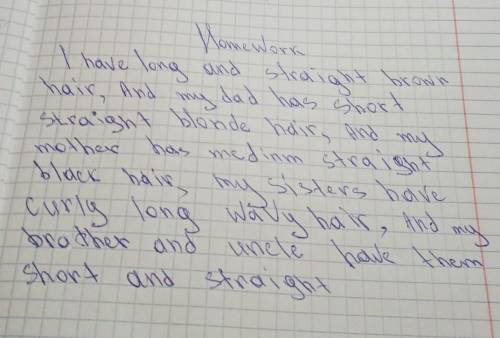 Homework
I have long and straight brown
hair, And my dad has short
straight blonde hair, And my
mother has medium straight
black hair, my sisters have
curly long wavy hair, And my
brother and uncle have them
short and straight